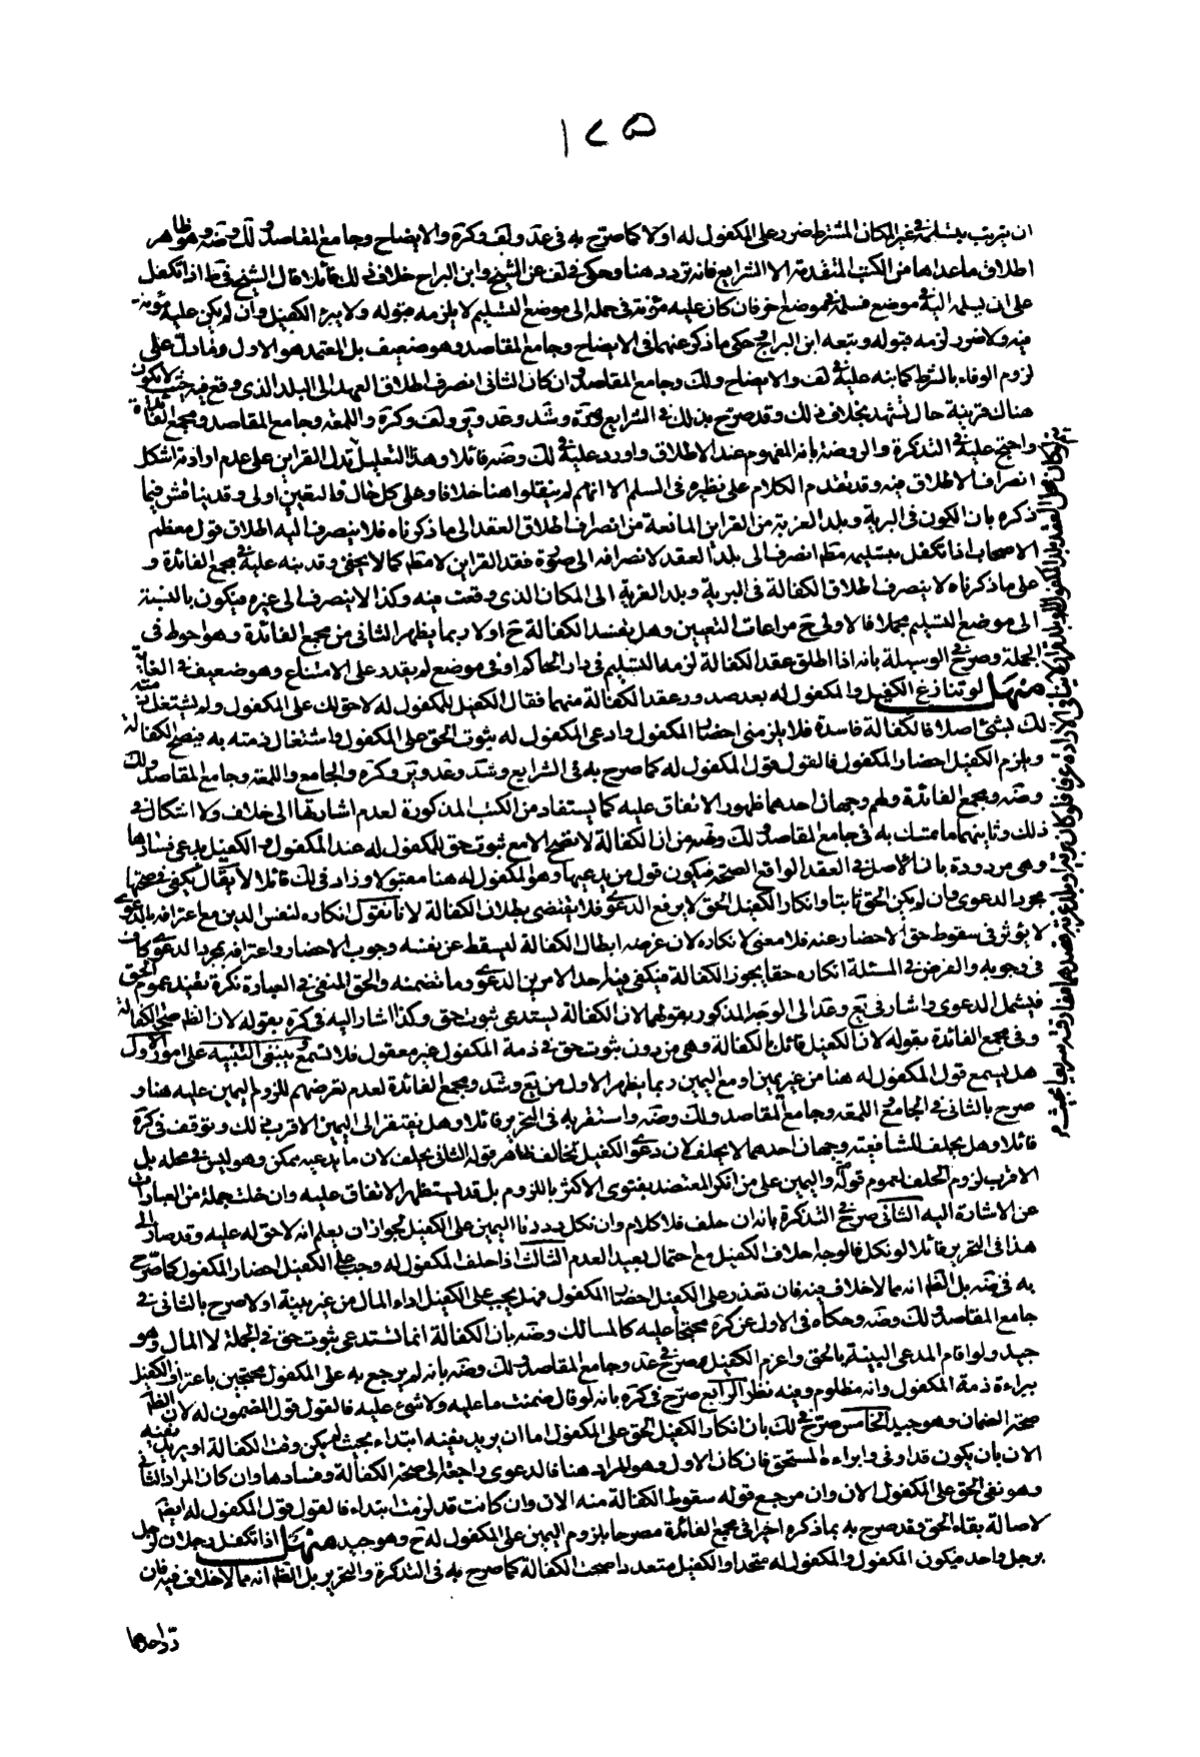 ١٢٥
ان ترتب بتسليمه في غير المكان المشترط ضرر على المكفول له اولا كما صرح به في عد ولف وكرة والايضاح وجامع المقاصد ولك وضه وهو ظاهر
اطلاق ما عداها من الكتب المتقدمة الا الشرايع فانه تردد هنا وحكى في لف عن الشيخ وابن البراج خلاف ذلك قائلا قال الشيخ في ط اذا تكفل
على ان يسلمه اليه في موضع فسلمه في موضع اخر فان كان عليه مؤنة في حمله الى موضع التسليم لا يلزمه قبوله ولا يبرء الكفيل وان لم يكن عليه مؤنة
فيه ولا ضرر لزمه قبوله وتبعه ابن البراج حكى ما ذكر عنهما في الايضاح وجامع المقاصد وهو ضعيف بل المعتمد هو الاول وفا دل على
لزوم الوفاء بالشرط كما نبه عليه في لف والايضاح ولك وجامع المقاصد وان كان الثاني انصرف اطلاق العهد الى البلد الذي وقع فيه حيث لا يكون
هناك قرينة حال تشهد بخلاف ذلك وقد صرح بذلك في الشرايع وشد وعد وير ولف وكرة واللمعه وجامع المقاصد ومجمع الفائدة
واحتج عليه في التذكرة والروضة بانه المفهوم عند الاطلاق واورد عليه في لك وضه قائلا وهذا التعليل تدل القراين على عدم ارادته اشكل
انصراف الاطلاق فيه وقد تقدم الكلام على نظيره في السلم الا انهم لم ينقلوا هنا خلافا وعلى كل حال فالتعيين اولى وقد يناقش فيما
ذكره بان الكون في البرية وبلد الغربة من القراين المانعة من انصراف اطلاق العقد الى ما ذكرناه فلا ينصرف اليه اطلاق قول معظم
الاصحاب اذا تكفل بتسليمه مطلقا انصرف الى بلد العقد لانصرافه الى صورة فقد القراين لا مطلقا كما لا يخفى وقد ينبه عليه في مجمع الفائدة و
على ما ذكرناه لا ينصرف اطلاق الكفالة في البرية وبلد الغربة الى المكان الذي وقعت فيه وكذا لا ينصرف الى غيره فيكون بالنسبة
الى موضع التسليم مجملا فالاولى ح مراعات التعيين وهل يفسد الكفالة ح اولا ربما يظهر الثاني من مجمع الفائدة وهو احوط في
الجملة وصرح في الوسيلة بانه اذا اطلق عقد الكفالة لزمه التسليم في دار الحاكم او في موضع لم يقدر على الامتناع وهو ضعيف في الغاية
منهل لو تنازع الكفيل والمكفول له بعد صدور عقد الكفالة منهما فقال الكفيل للمكفول له لا حق لك على المكفول ولم تشتغل ذمته
لك لشئ اصلا فالكفالة فاسدة فلا يلزمني احضار المكفول وادعى المكفول له ثبوت الحق على المكفول واشتغال ذمته به فيصح الكفالة
ويلزم الكفيل احضار المكفول فالقول قول المكفول له كما صرح به في الشرايع وشد وعد وير وكرة والجامع واللمعه وجامع المقاصد ولك
وضه ومجمع الفائدة ولهم وجهان احدهما ظهور الاتفاق عليه كما يستفاد من الكتب المذكورة لعدم اشارتها الى خلاف ولا اشكال في
ذلك وثانيهما ما تمسك به في جامع المقاصد ولك وضه من ان الكفالة لا تصح الا مع ثبوت حق للمكفول له عند المكفول والكفيل يدعي فسادها
وهي مردودة بان الاصل في العقد الواقع الصحة فيكون قول من يدعيها وهو المكفول له هنا مقبولا وزاد في لك قائلا لا يقال يكفي في صحتها
مجرد الدعوى وان لم يكن الحق ثابتا وانكار الكفيل الحق لا يرفع الدعوى فلا يقتضي بطلان الكفالة لانا نقول انكاره لنفس الدين مع اعترافه بالدعوى
لا يؤثر في سقوط حق الاحضار عنه فلا معنى لانكاره لان غرضه ابطال الكفالة ليسقط عن نفسه وجوب الاحضار واعترافه بمجرد الدعوى كاف
في وجوبه والفرض في المسئلة انكاره حقا يجوز الكفالة فيكفي فيه احد الامرين الدعوى وما تضمنه والحق المنفي في العبارة نكرة تفيد عموم الحق
فيشمل الدعوى واشار في يع وعد الى الوجه المذكور بقولهما لان الكفالة يستدعي ثبوت حق وكذا اشار اليه في كرة بقوله لان الظاهر صحة الكفالة
وفي مجمع الفائدة بقوله لان الكفيل قائل بالكفالة وهي من دون ثبوت حق في ذمة المكفول غير معقول فلا تسمع ينبغي التنبيه على امور الاول
هل يسمع قول المكفول له هنا من غير يمين او مع اليمين ربما يظهر الاول من يع وشد ومجمع الفائدة لعدم تعرضهم للزوم اليمين عليه هنا و
صرح بالثاني في الجامع اللمعه وجامع المقاصد ولك وضه واستقر به في التحرير قائلا وهل يفتقر الى اليمين الاقرب ذلك وتوقف في كرة
قائلا وهل يحلف للشافعية وجهان احدهما لا يحلف لان دعوى الكفيل تخالف ظاهر قوله الثاني يحلف لان ما يدعيه ممكن وهو ليس في محله بل
الاقرب لزوم الحلف لعموم قوله واليمين على من انكر المعتضد بفتوى الاكثر باللزوم بل قد استظهر الاتفاق عليه وان خلت جملة من العبارات
عن الاشارة اليه الثاني صرح في التذكرة بانه ان حلف فلا كلام وان نكل رددنا اليمين على الكفيل لجواز ان يعلم انه لا حق له عليه وقد صار الى
هذا في التحرير قائلا لو نكل فالوجه احلاف الكفيل مع احتمال بعيد العدم الثالث اذا حلف المكفول له وجب على الكفيل احضار المكفول كما صرح
به في ضه بل الظاهر انه مما لا خلاف فيه فان تعذر على الكفيل احضار المكفول فهل يجب على الكفيل اداء المال من غير بينة اولا صرح بالثاني في
جامع المقاصد ولك وضه وحكاه في الاول عن كرة محتجا عليه كالمسالك وضه بان الكفالة انما تستدعي ثبوت حق في الجملة لا المال وهو
جيد ولو اقام المدعي البينة بالحق واغرم الكفيل صرح في عد وجامع المقاصد ولك وضه بانه لم يرجع به على المكفول محتجين باعتراف الكفيل
ببراءة ذمة المكفول وانه مظلوم وفيه نظر الرابع صرح في كرة بانه لو قال ضمنت ما عليه ولا شئ عليه فالقول قول المضمون له لان الظاهر
صحة الضمان وهو جيد الخامس صرح في لك بان انكار الكفيل الحق على المكفول اما ان يريد نفيه ابتداء بحيث لم يكن وقت الكفالة او يريد نفيه
الان بان يكون قد اوفى وابراءه المستحق فان كان الاول وهو المراد هنا فالدعوى راجعة الى صحة الكفالة وفسادها وان كان المراد الثاني
وهو نفي الحق على المكفول الان وان مرجع قوله سقوط الكفالة منه الان وان كانت قد لزمت ابتداء فالقول قول المكفول له ايضا
لاصالة بقاء الحق وقد صرح به بما ذكره اخيرا في مجمع الفائدة مصرحا بلزوم اليمين على المكفول له ح وهو جيد منهل اذا تكفل رجلان لرجل
برجل واحد فيكون المكفول والمكفول له متحدا والكفيل متعددا صحت الكفالة كما صرح به في التذكرة والتحرير بل الظاهر انه مما لا خلاف فيه فان
احدها